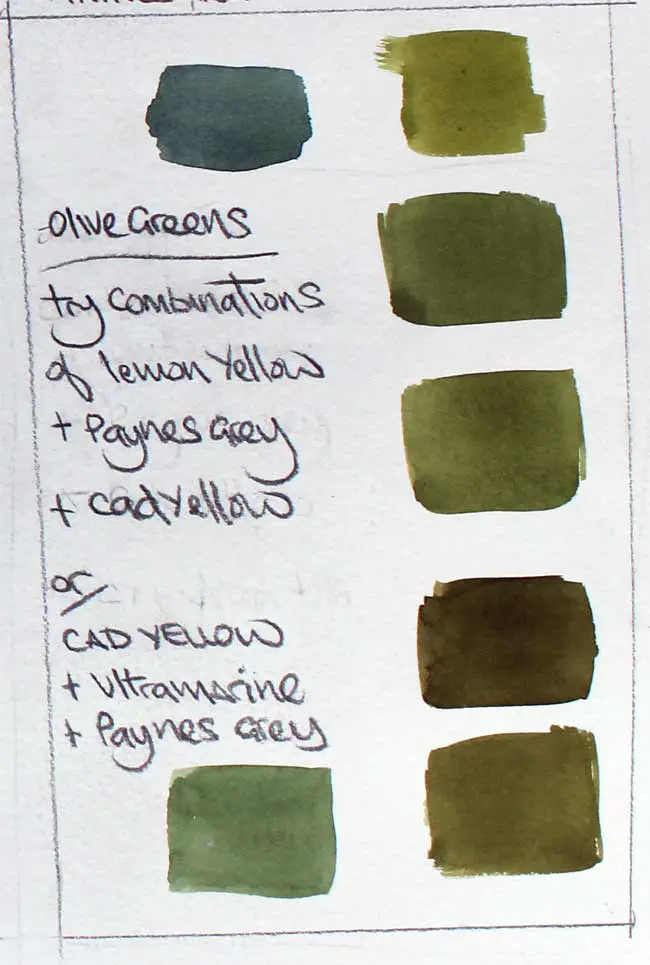 Olive Greens
try combinations
of lemon yellow
+ Paynes Grey
+ cad yellow
or
CAD YELLOW
+ Ultramarine
+ Paynes Grey